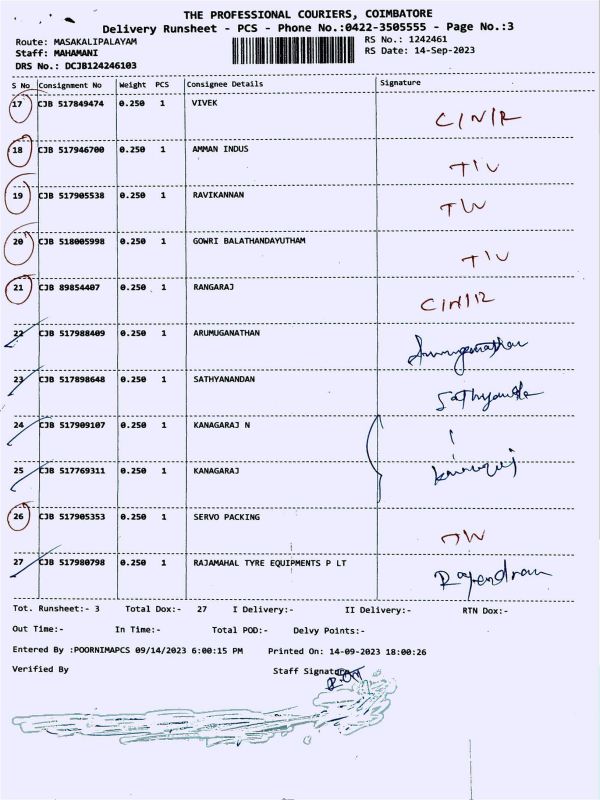 THE PROFESSIONAL COURIERS, COIMBATORE
Delivery Runsheet - PCS - Phone No.:0422-3505555 - Page No.:3
Route: MASAKALIPALAYAM RS No.: 1242461
Staff: MAHAMANI RS Date: 14-Sep-2023
DRS No.: DCJB124246103
S No Consignment No Weight PCS Consignee Details Signature
17 CJB 517849474 0.250 1 VIVEK C/N/R
18 CJB 517946700 0.250 1 AMMAN INDUS
19 CJB 517905538 0.250 1 RAVIKANNAN
20 CJB 518005998 0.250 1 GOWRI BALATHANDAYUTHAM
21 CJB 89854407 0.250 1 RANGARAJ C/N/R
22 CJB 517988409 0.250 1 ARUMUGANATHAN Arumuganathan
23 CJB 517898648 0.250 1 SATHYANANDAN
24 CJB 517909107 0.250 1 KANAGARAJ N
25 CJB 517769311 0.250 1 KANAGARAJ
26 CJB 517905353 0.250 1 SERVO PACKING
27 CJB 517980798 0.250 1 RAJAMAHAL TYRE EQUIPMENTS P LT Rajendran
Tot. Runsheet:- 3 Total Dox:- 27 I Delivery:- II Delivery:- RTN Dox:-
Out Time:- In Time:- Total POD:- Delvy Points:-
Entered By :POORNIMAPCS 09/14/2023 6:00:15 PM Printed On: 14-09-2023 18:00:26
Verified By Staff Signature